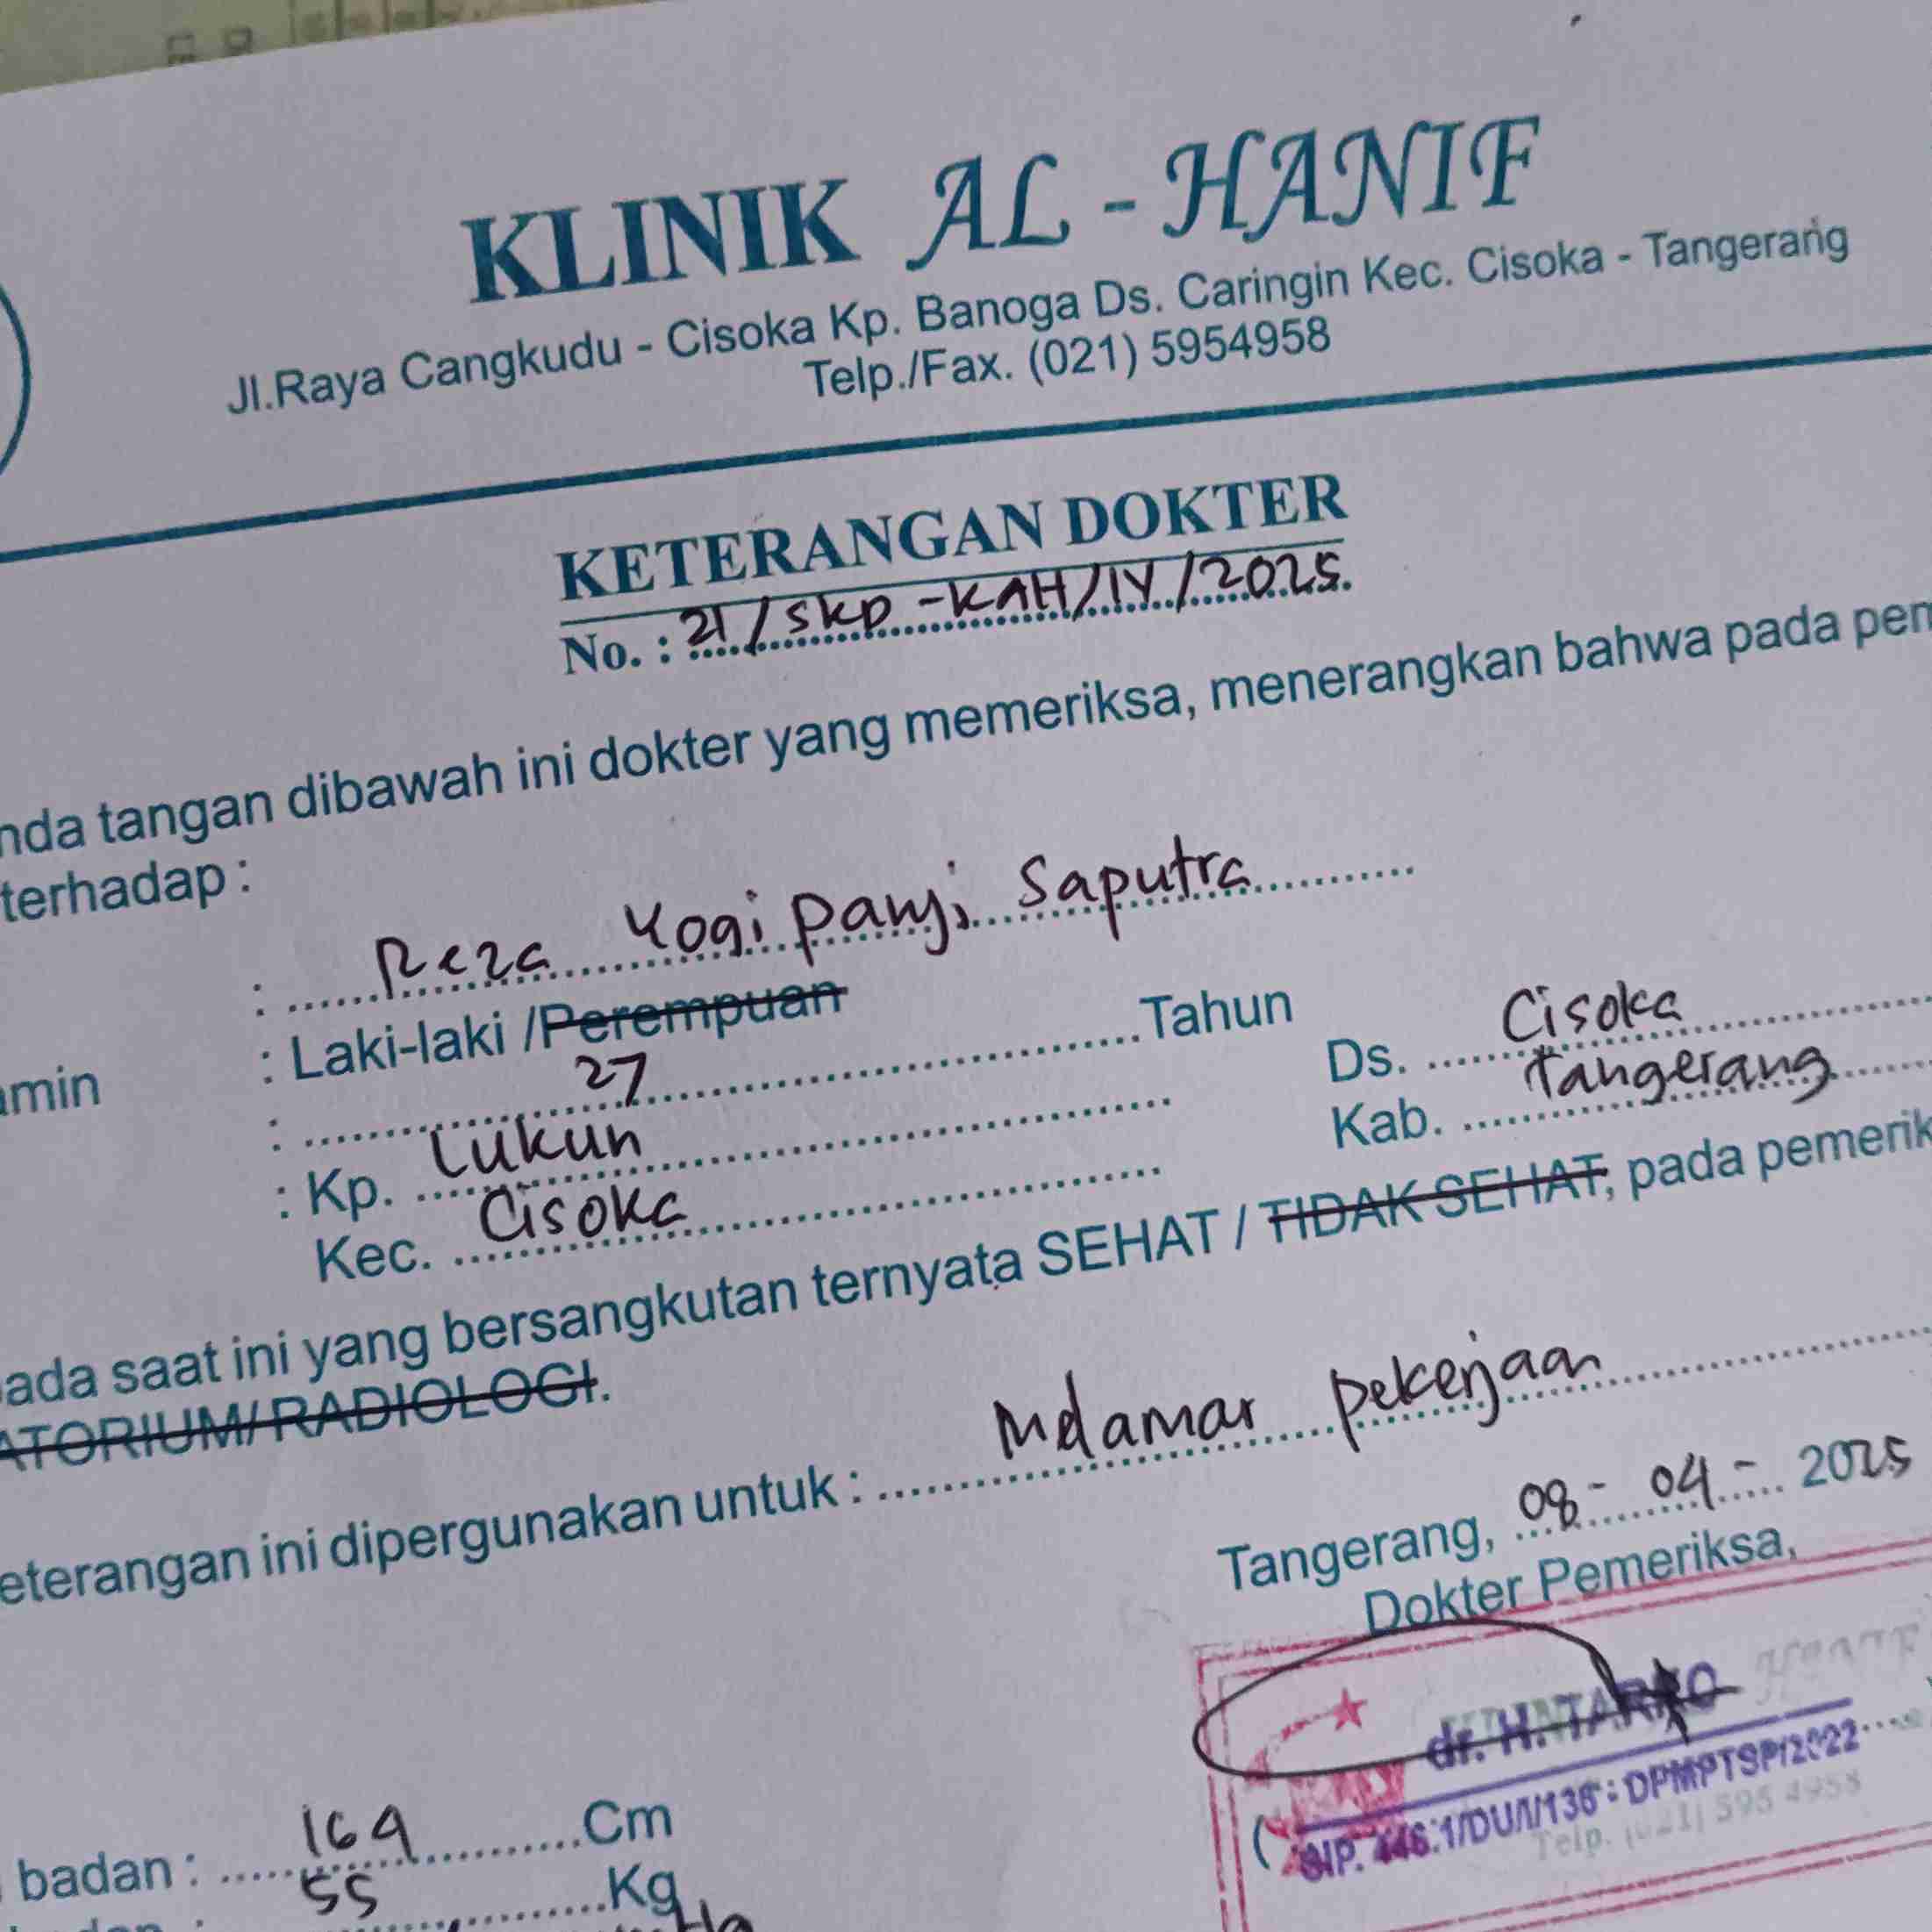 KLINIK AL - HANIF
Jl.Raya Cangkudu - Cisoka Kp. Banoga Ds. Caringin Kec. Cisoka - Tangerang
Telp./Fax. (021) 5954958
KETERANGAN DOKTER
No. : 21/SKD-KAH/IV/2025.
nda tangan dibawah ini dokter yang memeriksa, menerangkan bahwa pada pem
terhadap :
: Reza Yogi Panji Saputra
amin : Laki-laki / Perempuan
: 27 Tahun
: Kp. Cukun Ds. Cisoka
Kec. Cisoka Kab. Tangerang
ada saat ini yang bersangkutan ternyata SEHAT / TIDAK SEHAT, pada pemerik
ATORIUM/ RADIOLOGI.
eterangan ini dipergunakan untuk : Melamar pekerjaan
Tangerang, 08 - 04 - 2025
Dokter Pemeriksa,
dr. H. TARKO
SIP. 446.1/DU/I/136 : DPMPTSP/2022
Telp. (021) 595 4958
badan : 169 Cm
55 Kg